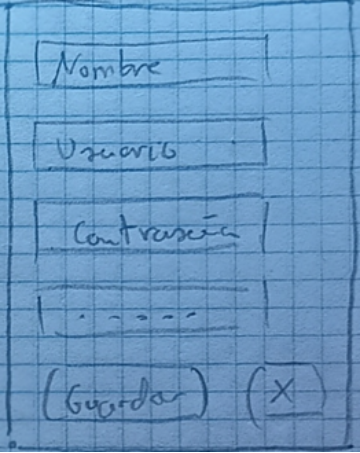 Nombre
Usuario
Contraseña
------
(Guardar) (X)